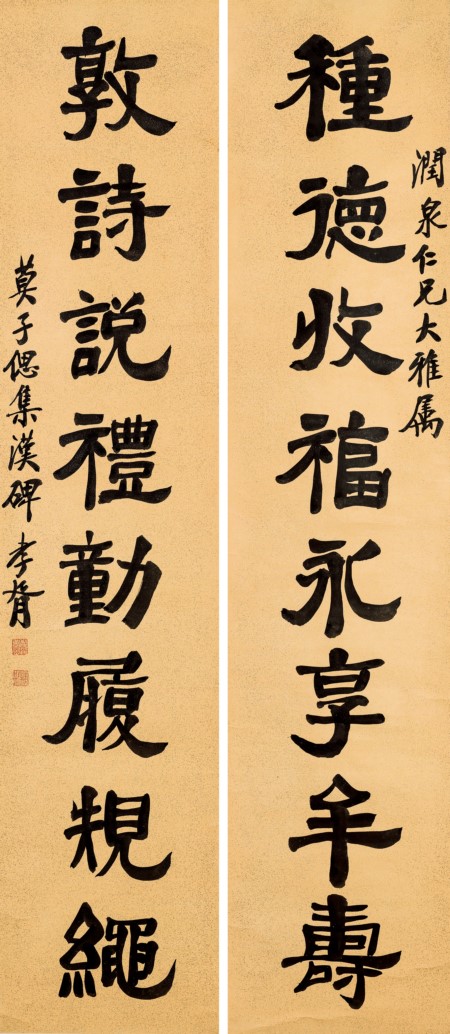 潤泉仁兄大雅属
種德收福永享年壽
敦詩説禮動履規繩
莫子偲集漢碑 孝胥